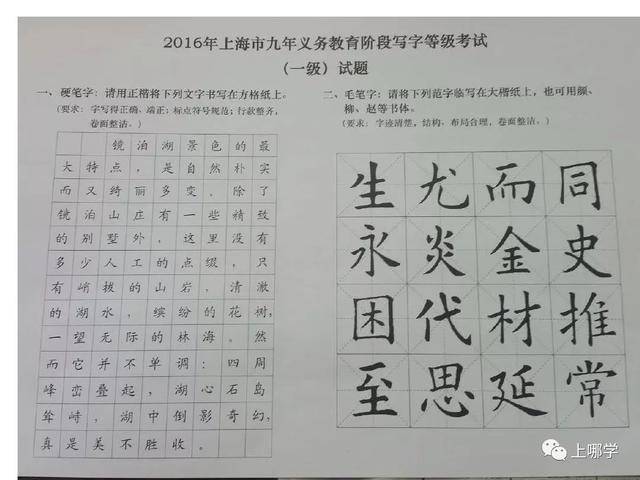 2016年上海市九年义务教育阶段写字等级考试
（一级）试题
一、硬笔字：请用正楷将下列文字书写在方格纸上。
（要求：字写得正确、端正；标点符号规范；行款整齐，
卷面整洁。）
镜泊湖景色的最
大特点，是自然朴实
而又绮丽多变。除了
镜泊山庄有一些精致
的别墅外，这里没有
多少人工的点缀，只
有峭拔的山岩，清澈
的湖水，缤纷的花树，
一望无际的林海。然
而它并不单调：四周
峰峦叠起，湖心石岛
耸峙，湖中倒影奇幻，
真是美不胜收。
二、毛笔字：请将下列范字临写在大楷纸上，也可用颜、
柳、赵等书体。
（要求：字迹清楚，结构、布局合理，卷面整洁。）
生尤而同
永炎金史
困代材推
至思延常
上哪学